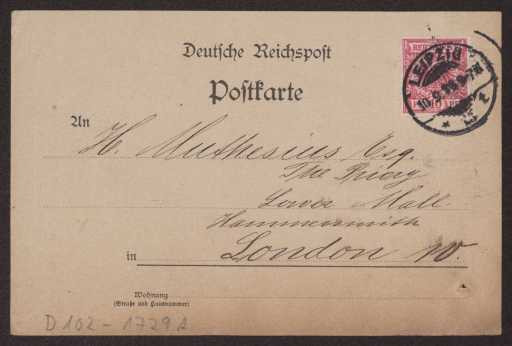 Deutsche Reichspost
Postkarte
LEIPZIG
An
H. Muthesius Esq.
The Priory
Lower Mall
Hammersmith
in London W.
Wohnung
(Straße und Hausnummer)
D 102 - 1729 a